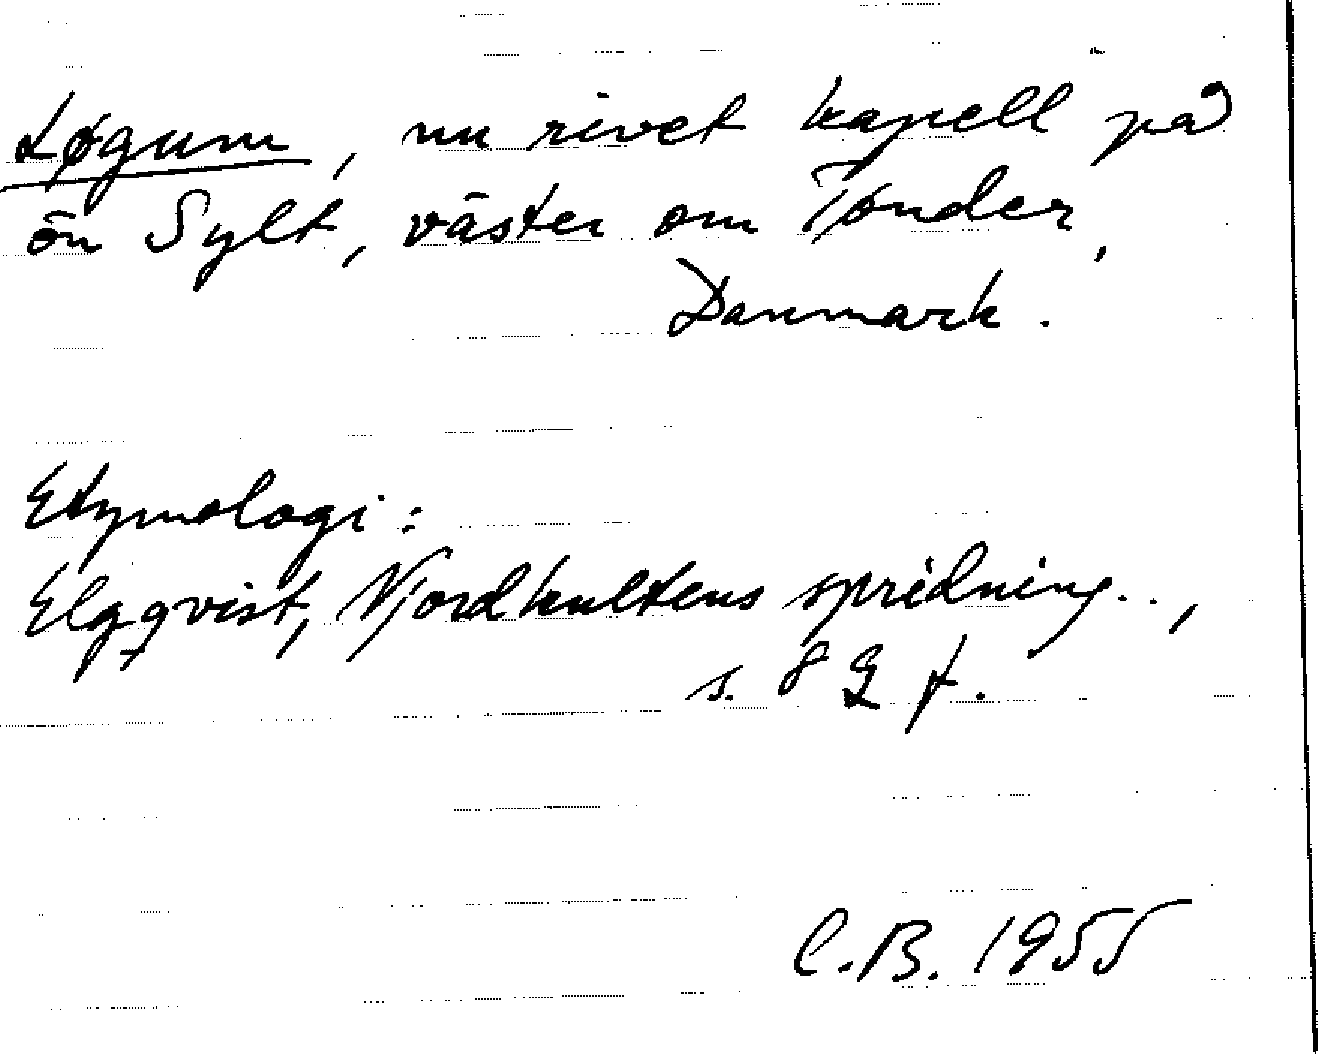 Løgum, nu rivet kapell på
ön Sylt, väster om Tønder,
Danmark.
Etymologi:
Elqqvist, Njordkultens spridning..,
s. 82 f.
C.B. 1955